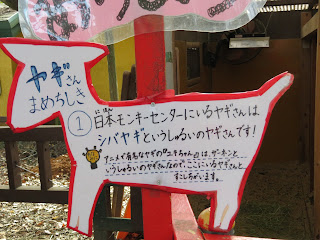 ヤギさん
まめちしき
① 日本モンキーセンターにいるヤギさんは
にほん
シバヤギというしゅるいのヤギさんです!
アニメで有名なヤギの「ユキちゃん」は ザーネンと
いうしゅるいのヤギさんなので、ここにいるヤギさんと
すこしちがいます。